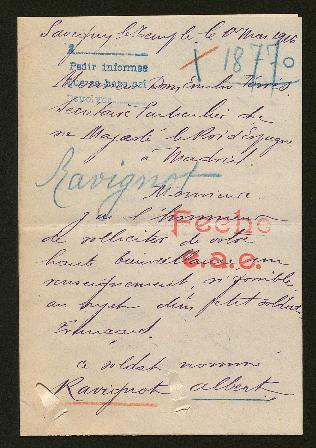 Savigny le Temple le 1er Mai 1916
18770
Pedir informes
Don Emilio Torres
Secrétaire Particulier de
sa Majesté le Roi d'Espagne
à Madrid
Ravignot
Monsieur
J'ai l'honneur
Fecho
de solliciter de votre
e.a.c.
haute bienveillance un
renseignement, si possible,
au sujet d'un petit soldat
Français.
Ce soldat nommé
Ravignot Albert